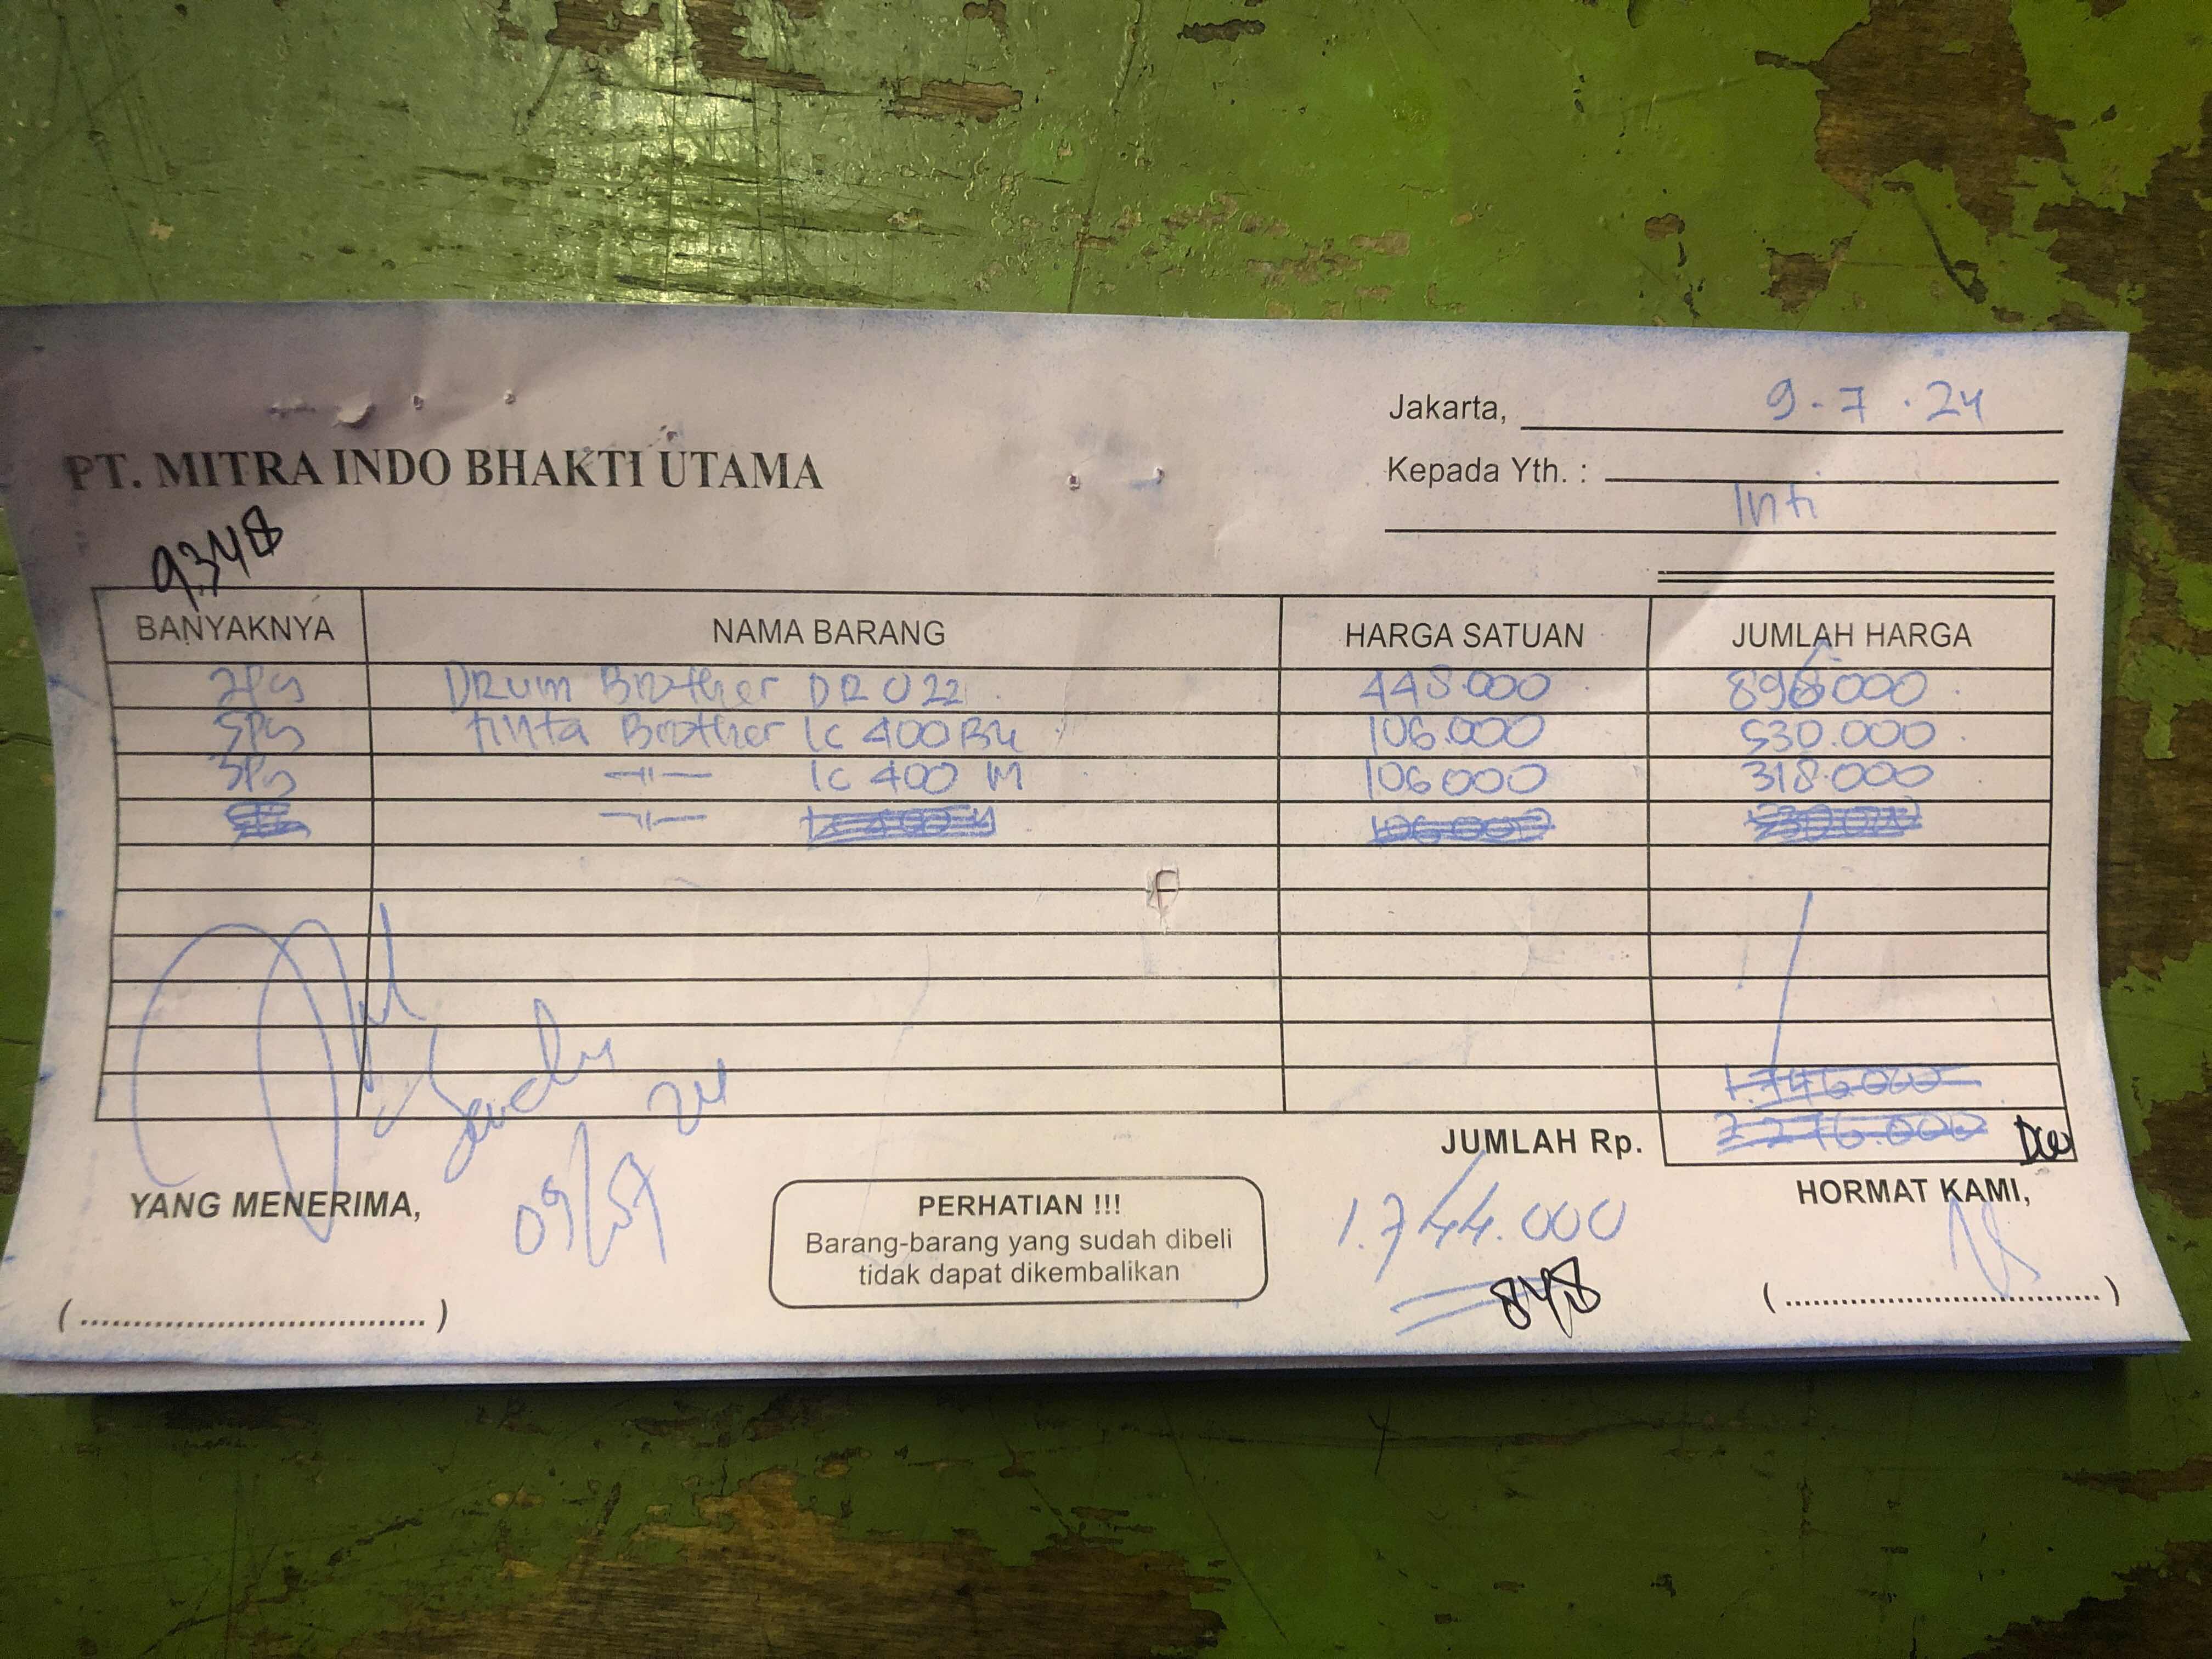 Jakarta, 9-7.24
PT. MITRA INDO BHAKTI UTAMA
Kepada Yth. :
Inti
9348
BANYAKNYA NAMA BARANG HARGA SATUAN JUMLAH HARGA
2Pcs Drum Brother DR 022 448.000 896000
5Pcs tinta Brother lc 400 BK 106.000 530.000
3Pcs -"- lc 400 M 106000 318.000
-"- 106000
2.276.000
JUMLAH Rp.
24
09/07
YANG MENERIMA,
PERHATIAN !!!
Barang-barang yang sudah dibeli
tidak dapat dikembalikan
1.744.000
848
HORMAT KAMI,
(..................................)
(..................................)